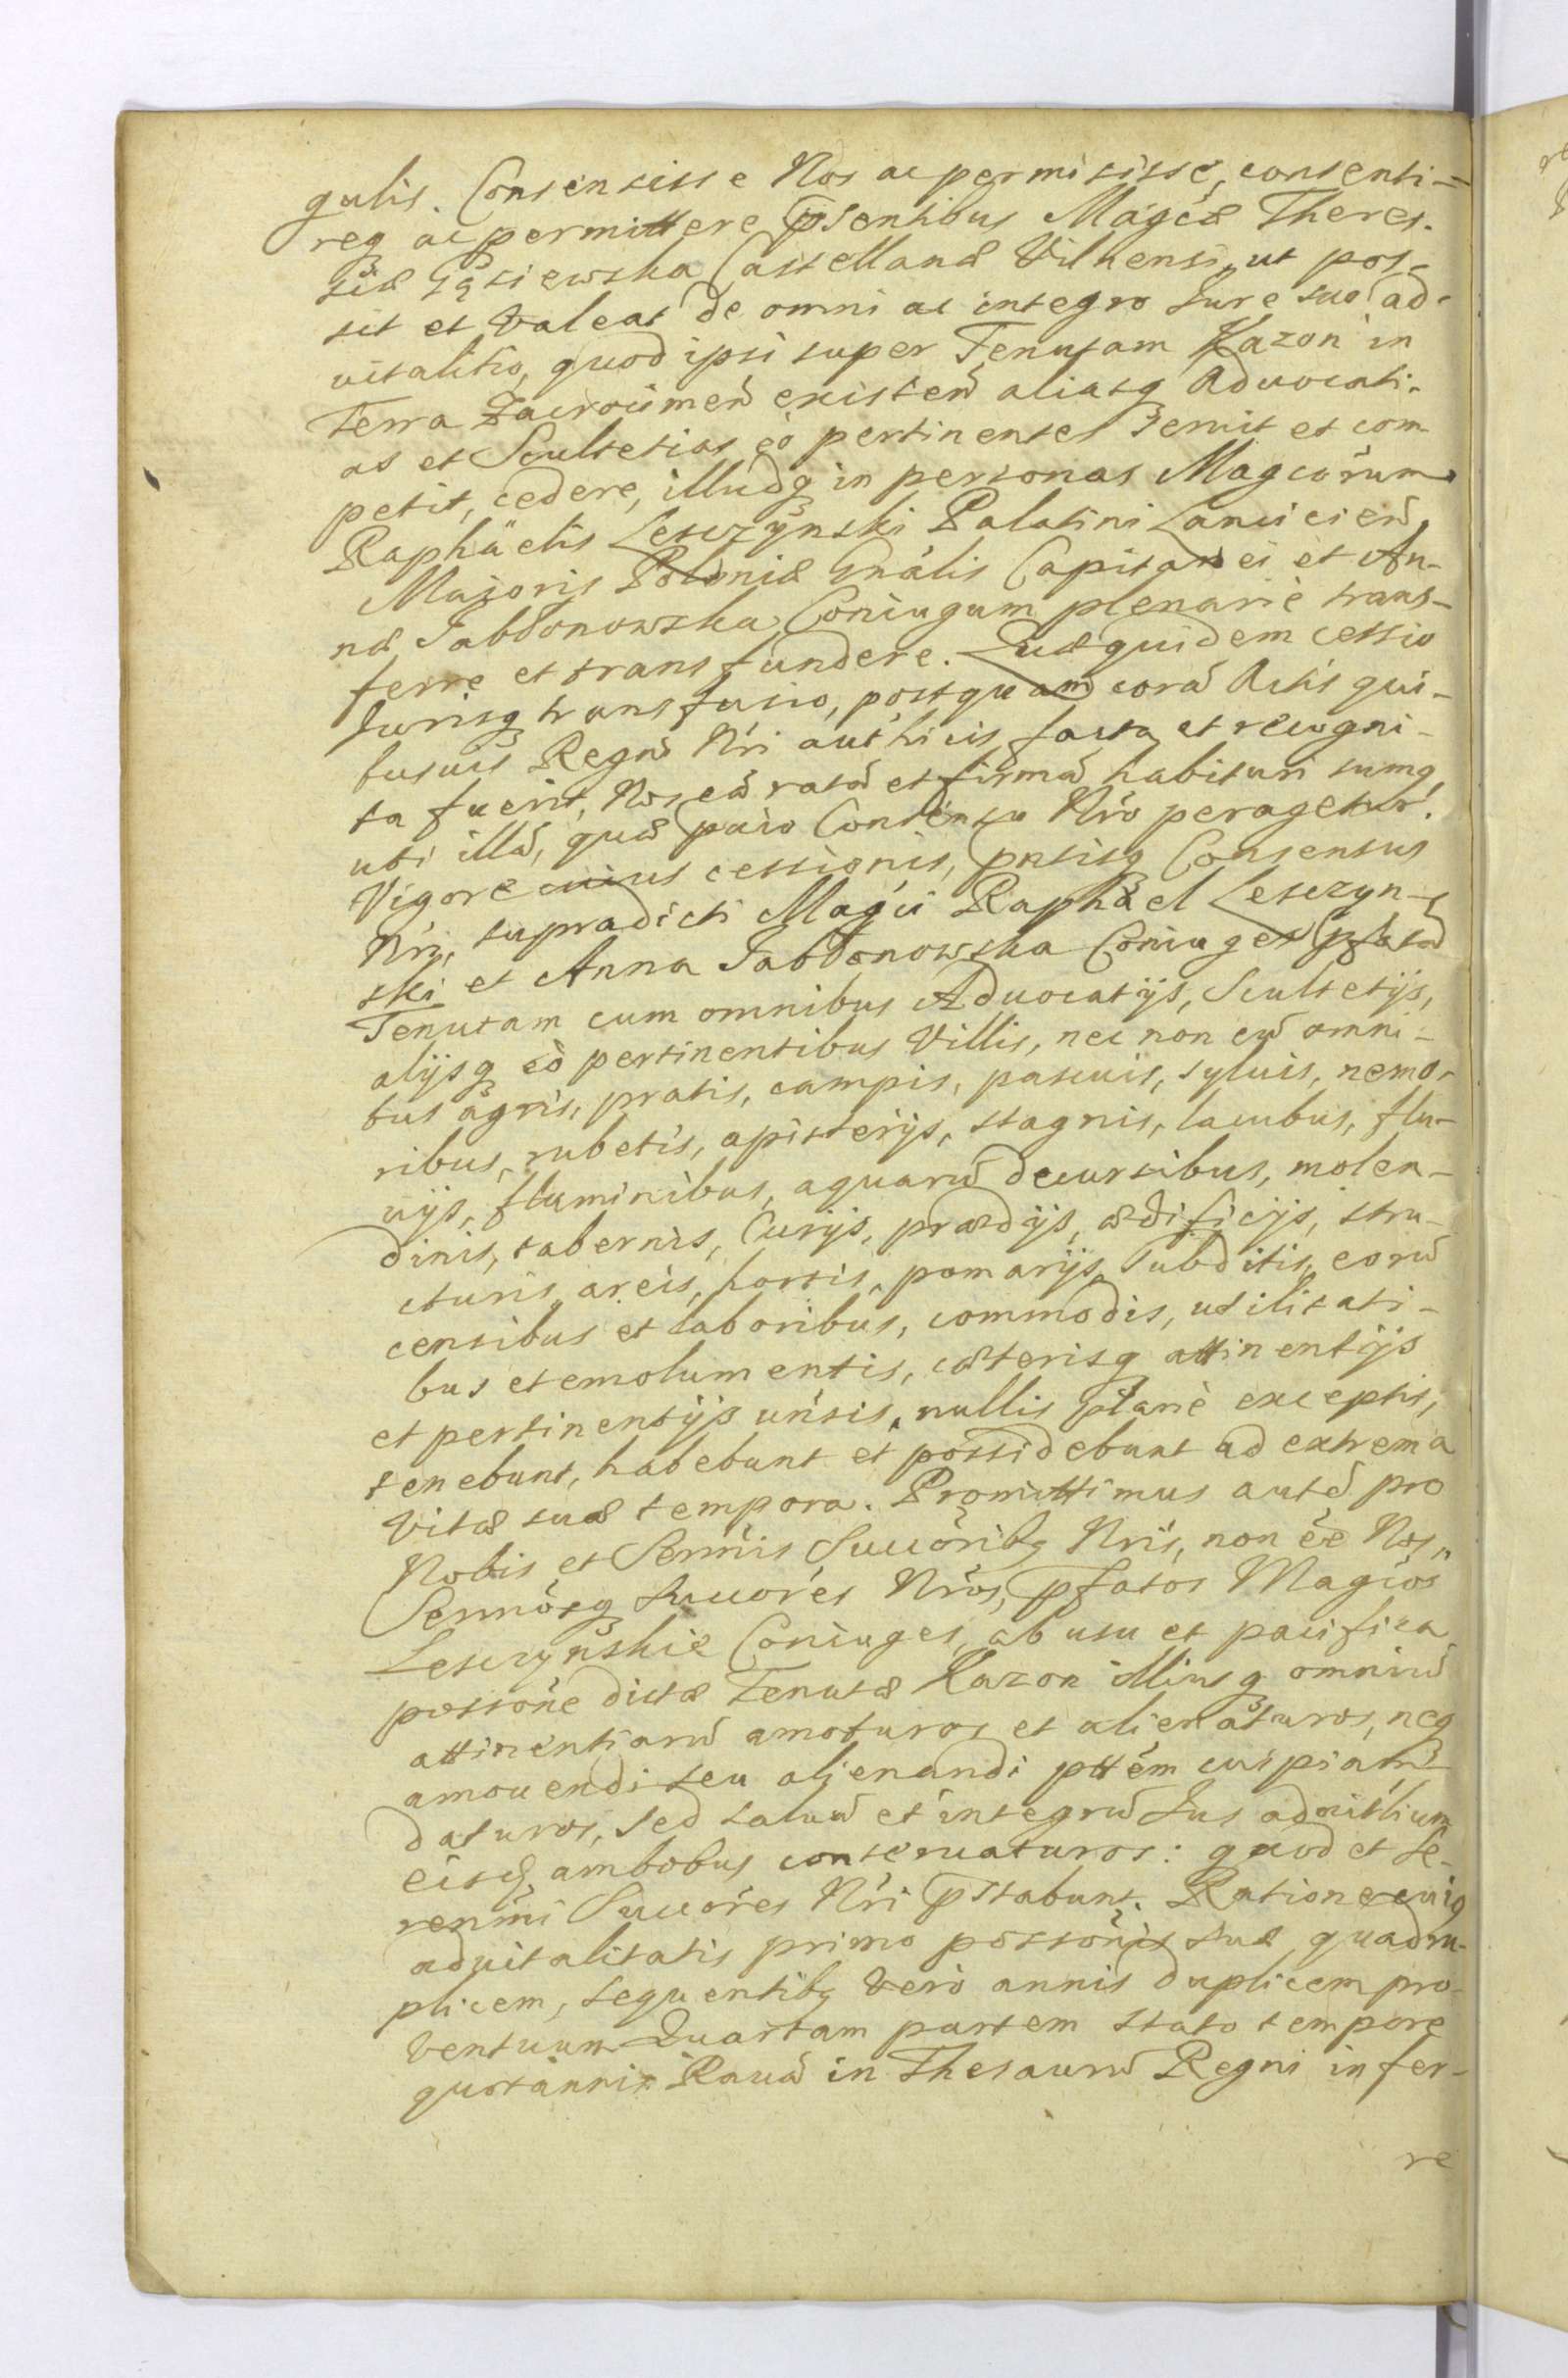 gulis. Consensisse Nos ac permisisse, consenti=
req ac permittere pñsentibus Magcæ Theres.
siæ Gąsiewska Castellanæ Vilnensi, ut pos-
sit et valeat de omni ac integro Jure suo ad-
vitalitio, quod ipsi super Tenutam Kazoń in
Terra Zacroiimeñ existeñ aliasq Advocati-
as et Scultetias eò pertinentes servit et com
petit, cedere, illudq in personas Magcorum
Raphäelis Lesczÿnski Palatini Lancicieñ,
Majoris Poloniæ Gnãlis Capitanei et An-
næ Jabłonowska Coniugum plenariè trans-
ferre et transfundere. Quæ quidem cessio
Jurisq transfusio, postquam corã Actis qui-
busuis Regni Nři autħicis facta et recogni-
ta fuerit, Nos eã ratã et firmã habituri sumq,
ubi illã, quæ pãio Consensu Nřo peragetur.
Vigore cuius cessionis, pñtisq Consensus
Nři, supradicti Magci Raphäel Lesczyn-
ski et Anna Jabłonowska Coniuges pfatã
Tenutam cum omnibus Advocatijs, Scultetijs,
alijsq eò pertinentibus Villis, nec non cũ omni-
bus agris, pratis, campis, pascuis, syluis, nemo-
ribus, rubetis, apisterijs, stagnis, lacubus, flu-
uijs, fluminibus, aquarũ decursibus, molen-
dinis, tabernis, Curijs, prædijs, ædificijs, stru-
cturis, areis, hortis, pomarijs, Subditis, eorũ
censibus et laboribus, commodis, utilitati-
bus et emolumentis, cæterisq attinentijs
et pertinentijs uñsis, nullis planè exceptis,
tenebunt, habebunt et possidebunt ad extrema
vitæ suæ tempora. Promittimus autẽ pro
Nobis et Sermis Succoribq Nřis, non eẽ Nos,
Sermosq Succores Nřos, pfatos Magcos
Lesczyńskie Coniuges, ab usu et pacifica
possone dictæ Tenutæ Kazoń illiusq omniũ
attinentiarũ amoturos et alienaturos, neq
amouendi seu alienandi pttem cuipiam
daturos, sed saluũ et integrũ Jus aduitlium
eisd. ambobus conseruaturos: quod et Se-
renmi Succores Nři pstabunt. Ratione cuiq
aduitalitatis primo possonis suæ quadru-
plicem, sequentibq verò annis duplicem pro-
ventuum Quartam partem stato tempore
quotannis Rauã in Thesaurũ Regni infer-
re